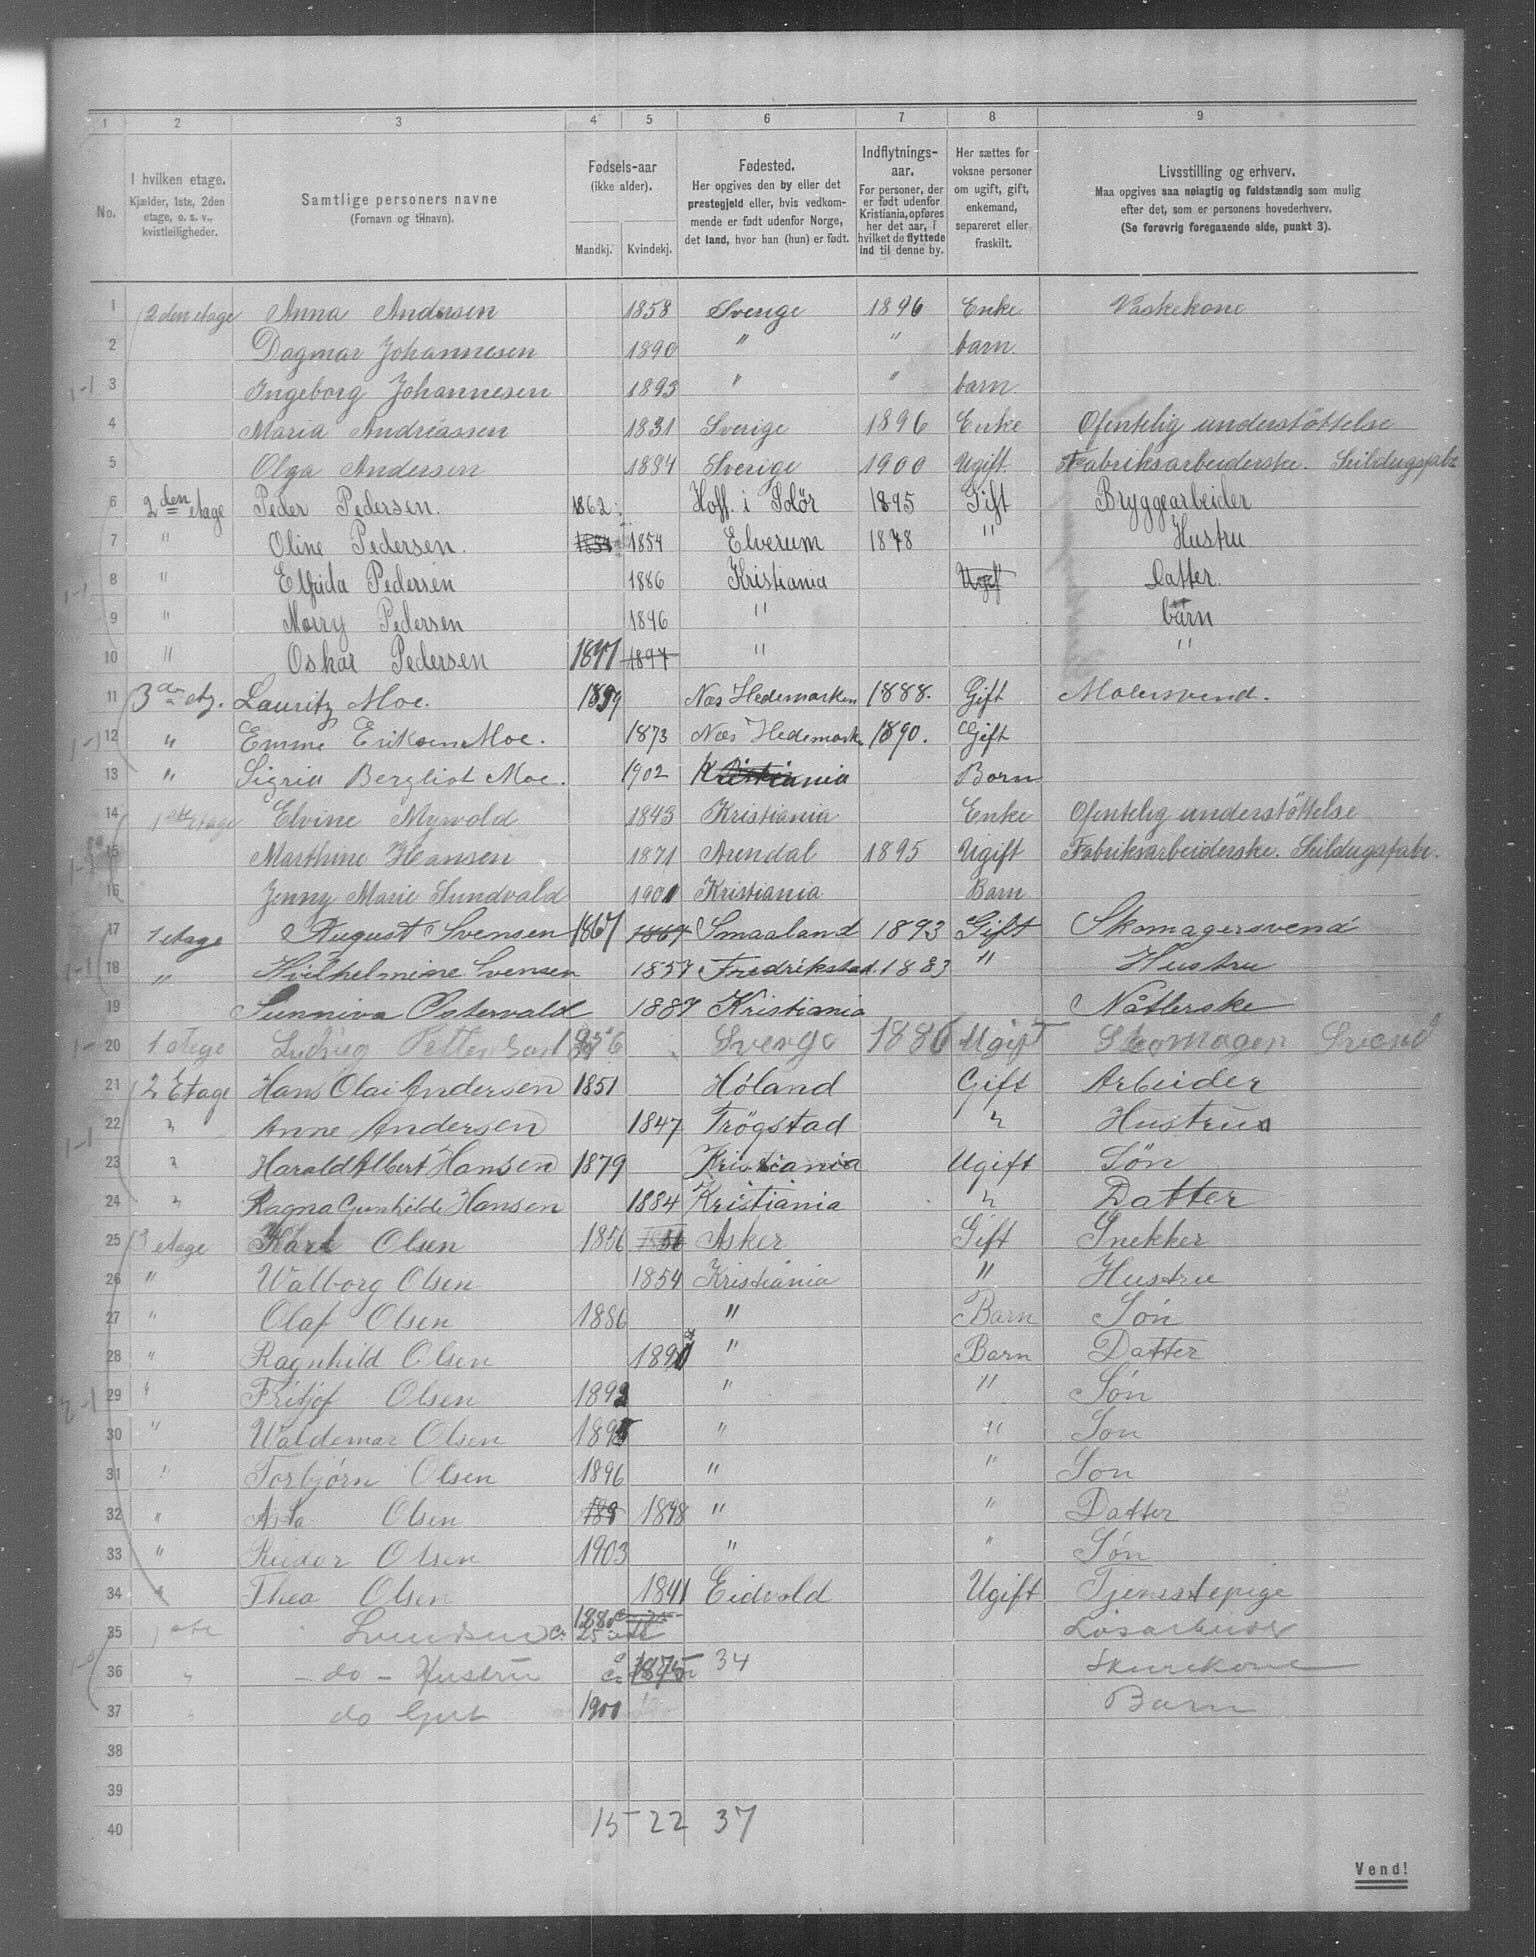 1 2 3 4 5 6 7 8 9
No.
I hvilken etage.
Kjælder, 1ste, 2den
etage, o. s. v.,
kvistleiligheder.
Samtlige personers navne
(Fornavn og tilnavn).
Fødsels-aar
(ikke alder).
Mandkj. Kvindekj.
Fødested.
Her opgives den by eller det
prestegjeld eller, hvis vedkom-
mende er født udenfor Norge,
det land, hvor han (hun) er født.
Indflytnings-
aar.
For personer, der
er født udenfor
Kristiania, opføres
her det aar, i
hvilket de flyttede
ind til denne by.
Her sættes for
voksne personer
om ugift, gift,
enkemand,
separeret eller
fraskilt.
Livsstilling og erhverv.
Maa opgives saa nøiagtig og fuldstændig som mulig
efter det, som er personens hovederhverv.
(Se forøvrig foregaaende side, punkt 3).
1 2den etage Anna Andersen 1858 Sverige 1896 Enke Vaskekone
2 Dagmar Johannesen 1890 " " barn.
3 Ingeborg Johannesen 1893 " " barn.
4 Maria Andreassen 1831 Sverige 1896 Enke Ofentelig understöttelse
5 Olga Andersen 1884 Sverige 1900 Ugift Fabriksarbeiderske. Seildugsfabr
6 2den etage Peder Pedersen. 1862 Hoff. i Solör 1895 Gift Bryggearbeider
7 " Oline Pedersen. 1854 1854 Elverum 1878 " Hustru
8 " Elfrida Pedersen 1886 Kristiania Ugif Datter.
9 " Morry Pedersen 1896 " barn
10 " Oskar Pedersen 1897 1897 " "
11 3die etg. Lauritz Moe. 1859 Næs Hedemarken 1888. Gift Malersvend.
12 " Emme Eriksen Moe. 1873 Næs Hedemark 1890. Gift
13 " Sigrid Bergliot Moe. 1902 Kristiania Barn
14 1ste etage Elvine Myrvold 1843 Kristiania Enke Ofentelig understöttelse
15 Marthine Hansen 1871 Arendal 1895 Ugift Fabriksarbeiderske. Seildugsfabr.
16 Jenny Marie Sundvald 1901 Kristiania Barn
17 1 etage August Svensen 1867 1867 Smaaland 1893 Gift Skomagersvend
18 " Wilhelmine Svensen 1857 Fredrikstad. 1883 " Hustru
19 Sunniva Ostervald 1887 Kristiania Nåtlerske
20 1 etage Ludvig Pettersen Sverge 1886 Ugift Skomager Svend
21 2 Etage Hans Olai Andersen 1851 Höland Gift Arbeider
22 " Anne Andersen 1847 Trögstad " Hustru
23 " Harald Albert Hansen 1879 Kristiania Ugift Sön
24 " Ragna Gunhilde Hansen 1884 Kristiania " Datter
25 3 etage Karl Olsen 1856 56 Asker Gift Snekker
26 " Walborg Olsen 1854 Kristiania " Hustru
27 " Olaf Olsen 1886 " Barn Sön
28 " Ragnhild Olsen 1890 " Barn Datter
29 " Fritjof Olsen 1892 " " Sön
30 " Waldemar Olsen 1895 " " Son
31 " Torbjörn Olsen 1896 " " Son
32 " Asta Olsen 189 1898 " " Datter
33 " Reidar Olsen 1903 " " Sön
34 " Thea Olsen 1841 Eidvold Ugift Tjenestepige
35 1ste Svendsen 1880 Løsarbeider
36 " - do - Hustru 1875 34 Skurekone
37 " do Gut 1900 Barn
38
39
40 15 22 37
Vend!